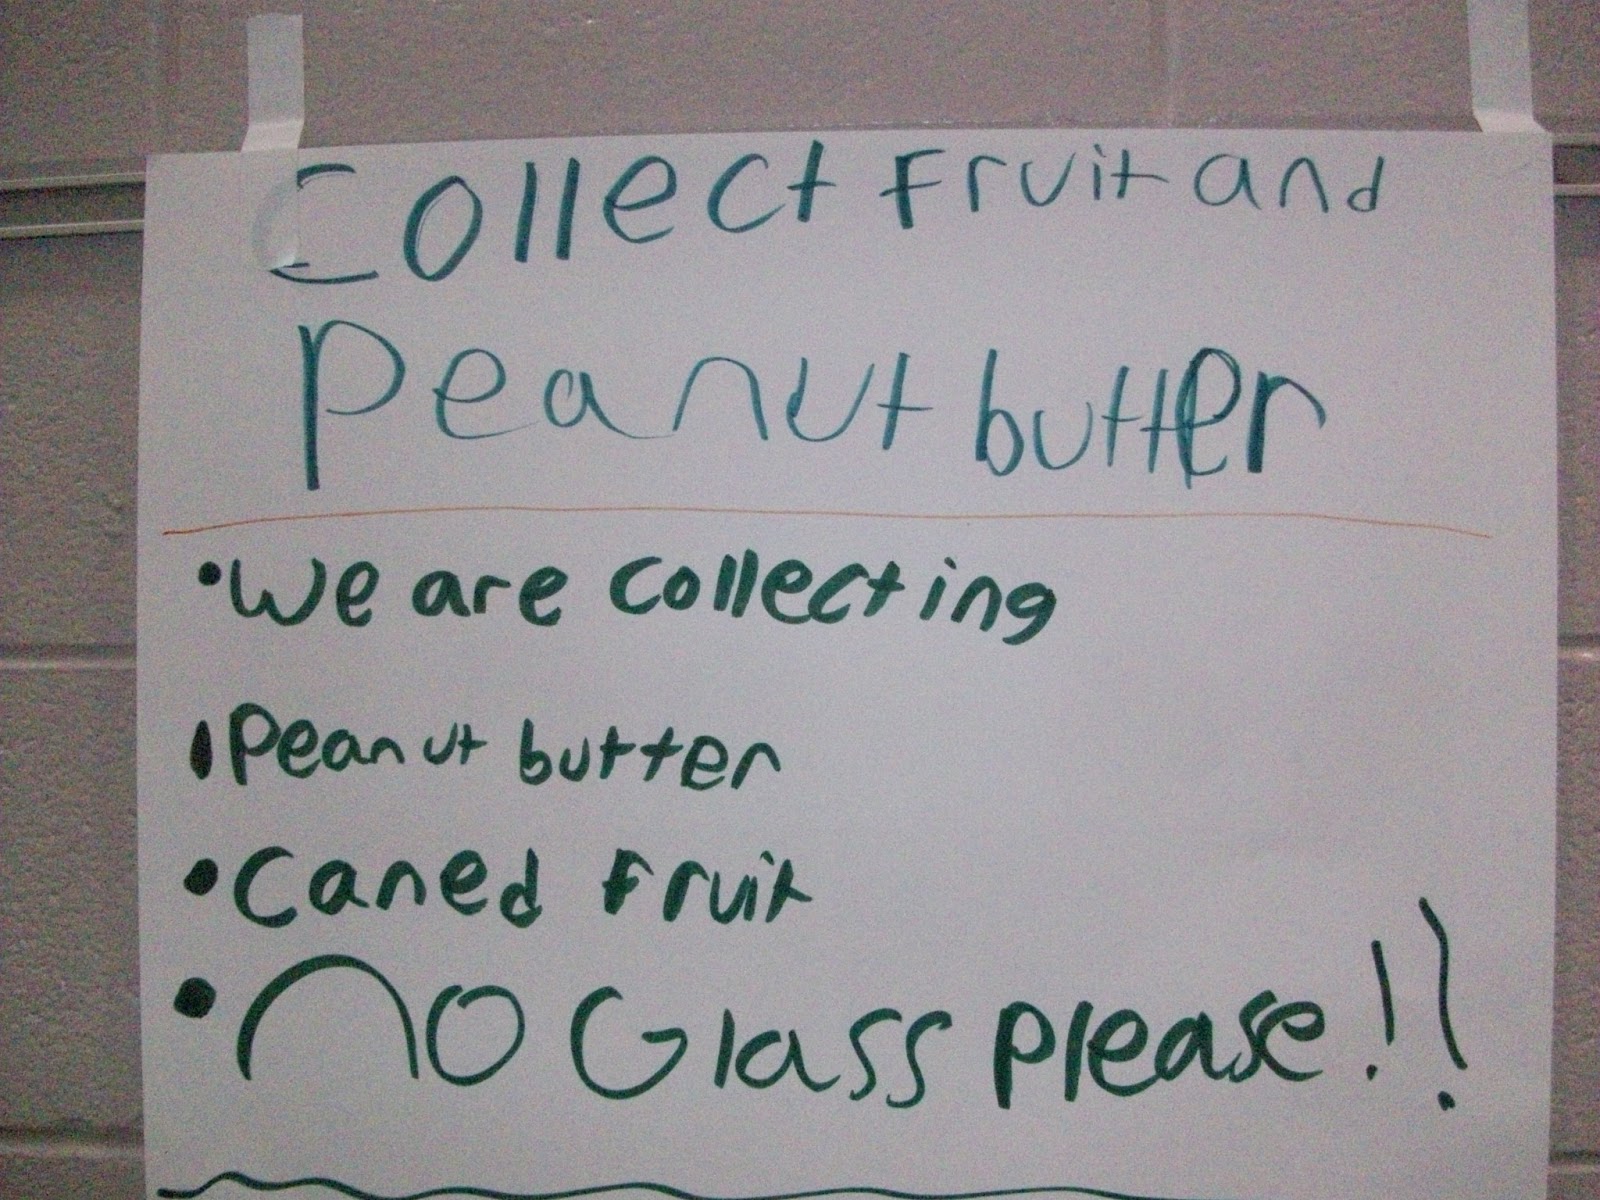 Collect Fruit and
Peanut butter
•We are collecting
•Peanut butter
•Caned Fruit
•No Glass please!!